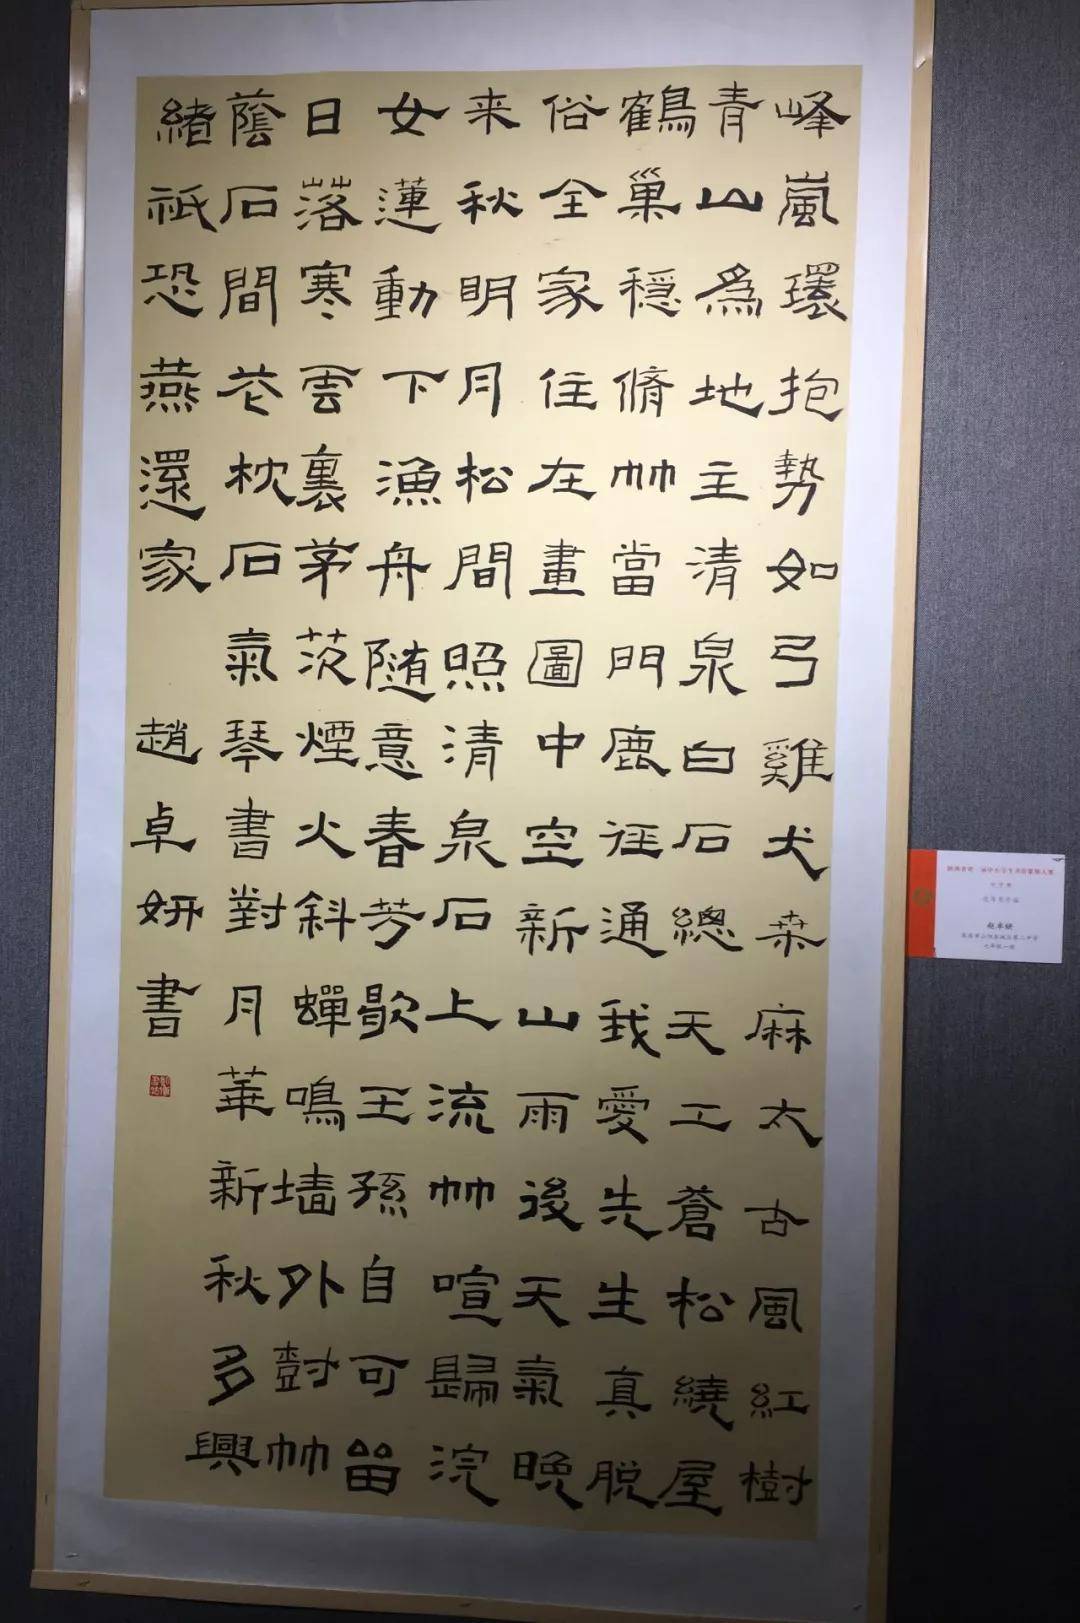 峰嵐環抱勢如弓雞犬桑麻太古風紅樹
青山爲地主清泉白石總天工蒼松繞屋
鶴巢穩脩竹當門鹿徑通我愛先生真脫
俗全家住在畫圖中空新山雨後天氣晚
来秋明月松間照清泉石上流竹喧歸浣
女蓮動下漁舟隨意春芳歇王孫自可留
日落寒雲裏茅茨煙火斜蟬鳴墙外樹竹
蔭石間花枕石氣琴書對月華新秋多興
緒祇恐燕還家 趙卓妍書
赵卓妍
七年级一班